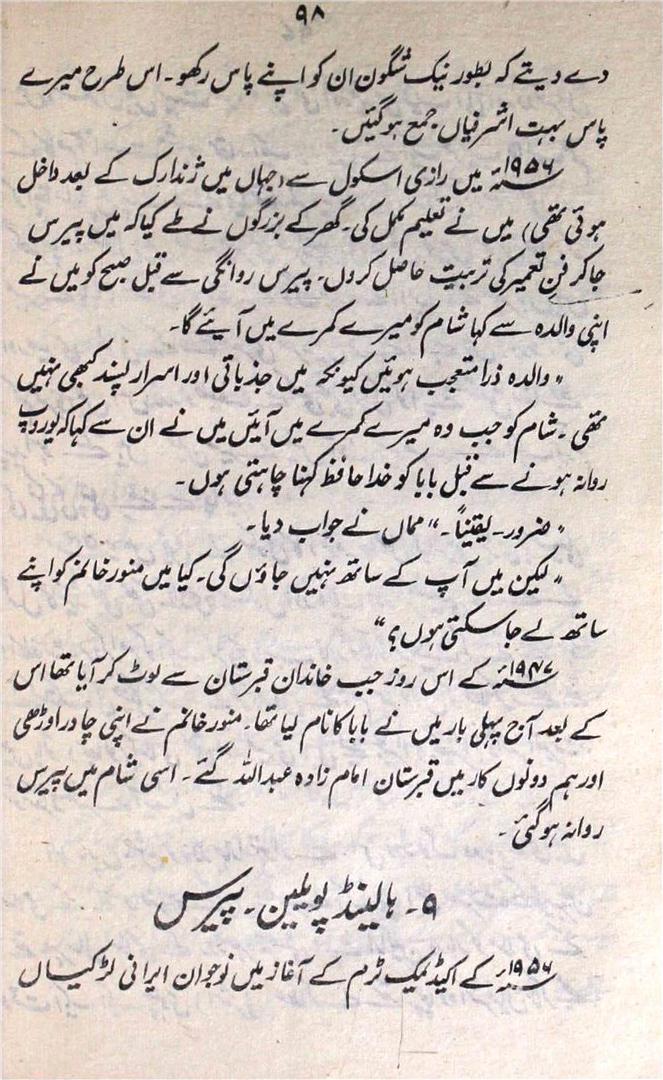 ۹۸
دے دیتے کہ بطور نیک شگون ان کو اپنے پاس رکھو۔ اس طرح میرے
پاس بہت اشرفیاں جمع ہوگئیں۔
۱۹۵۶ء میں رازی اسکول سے (جہاں میں ژندارک کے بعد داخل
ہوئی تھی) میں نے تعلیم مکمل کی۔ گھر کے بزرگوں نے طے کیا کہ میں پیرس
جا کر فن تعمیر کی تربیت حاصل کروں۔ پیرس روانگی سے قبل صبح کو میں نے
اپنی والدہ سے کہا شام کو میرے کمرے میں آیئے گا۔
"والدہ ذرا متعجب ہوئیں کیونکہ میں جذباتی اور اسرار پسند کبھی نہیں
تھی۔ شام کو جب وہ میرے کمرے میں آئیں میں نے ان سے کہا کہ یوروپ
روانہ ہونے سے قبل بابا کو خدا حافظ کہنا چاہتی ہوں۔
"ضرور۔ یقیناً۔" مماں نے جواب دیا۔
"لیکن میں آپ کے ساتھ نہیں جاؤں گی۔ کیا میں منور خانم کو اپنے
ساتھ لے جاسکتی ہوں؟"
۱۹۴۷ء کے اس روز جب خاندان قبرستان سے لوٹ کر آیا تھا اس
کے بعد آج پہلی بار میں نے بابا کا نام لیا تھا۔ منور خانم نے اپنی چادر اوڑھی
اور ہم دونوں کار میں قبرستان امام زادہ عبداللہ گئے۔ اسی شام میں پیرس
روانہ ہوگئی۔
۹۔ ہالینڈ پویلین۔ پیرس
۱۹۵۶ء کے اکیڈیمک ٹرم کے آغاز میں نوجوان ایرانی لڑکیاں